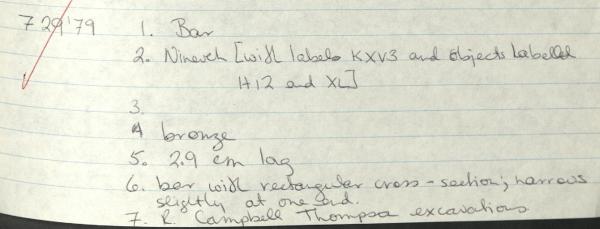 7 29 '79 1. Bar
2. Nineveh [with labels KXV3 and objects labelled
H,12 and XL]
3.
4 bronze
5. 2.9 cm log
6. bar with rectangular cross-section; narrows
slightly at one end.
7. R. Campbell Thompson excavations